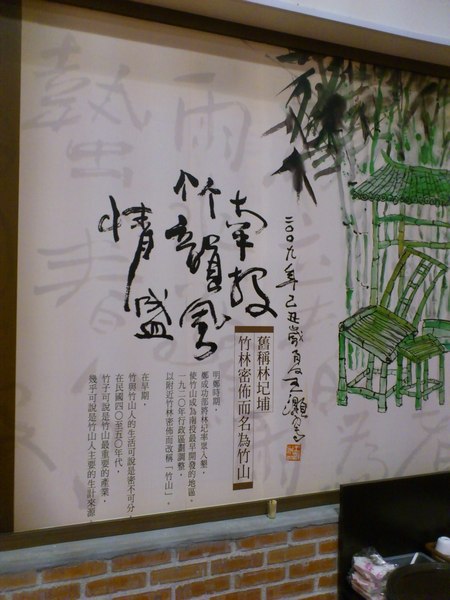 南投
竹韻風
情盛
二〇〇九年己丑歲夏
舊稱林圮埔
竹林密佈而名為竹山
明鄭時期，
鄭成功部將林圮率眾入墾，
使竹山成為南投最早開發的地區。
一九二〇年行政區劃調整，
以附近竹林密佈而改稱「竹山」。
在早期，
竹與竹山人的生活可說是密不可分，
在民國四〇至五〇年代，
竹子可說是竹山最重要的產業，
幾乎可說是竹山人主要的生計來源